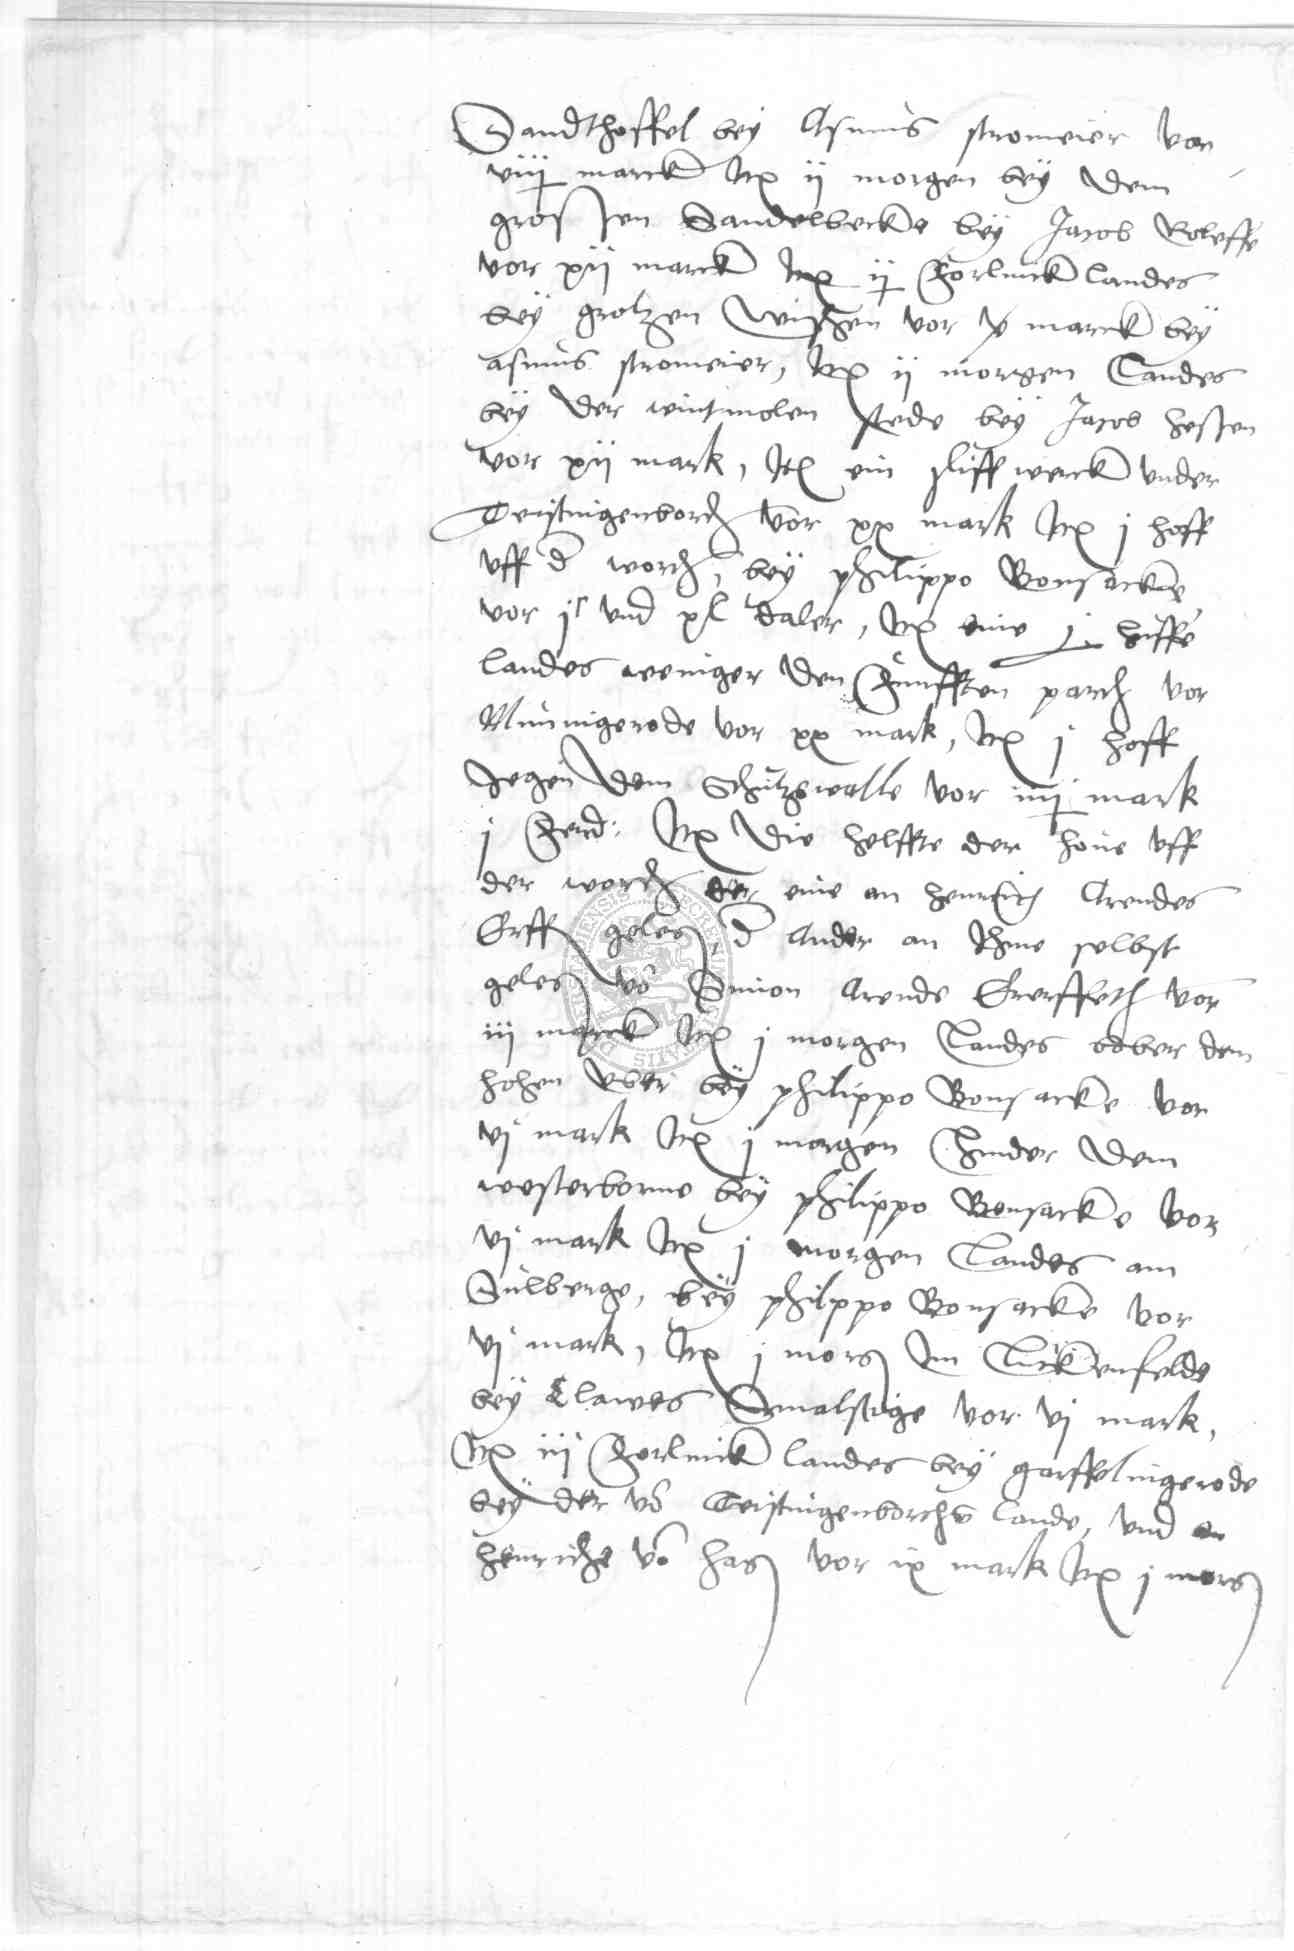 Sandthoffel bey Asmus stromeier vor
viij marck Item ij morgen bey dem
grossen Sandelbecke bey Jacob Roleffe
vor xij marck Item ij Forlinck landes
bey grolzen wischen vor x marck bey
asmus stromeier, Item ij morgen Landes
bey der wintmolen stede bey Jacob hessen
vor xij mark, Item ein sliffwerck under
Teistingenborch vor xx mark Item j hoff
uff der worch, bey philippo Bonsacke
vor jc und xl daler, Item eine j huffe
landes weniger den Funfften parch vor
Minnigerode vor xx mark, Item j hoff
Jegen dem Schutzewalle vor iiij mark
j Ferd: Item die helffte der hove uff
der worch der eine an henrich Arendes
Erff gelegen, der Ander an Ihme selbst
gelegen von Simon Arende Ererffeth vor
iij marck Item j morgen Landes obber dem
hohen uber bey philippo Bonsacke vor
vj mark Item j morgen hinder dem
westerborne bey philippo Bonsacke vor
vj mark Item j morgen Landes am
Sulberge, bey philippo Bonsacke vor
vj mark, Item j morgen Im Luckenfelde
bey Clawes Smalstige vor vj mark,
Item iij Forlinck landes bey garffelingerode
bey der von Teistingenborch lande, und an
henriche von hagen vor ix mark Item j morgen